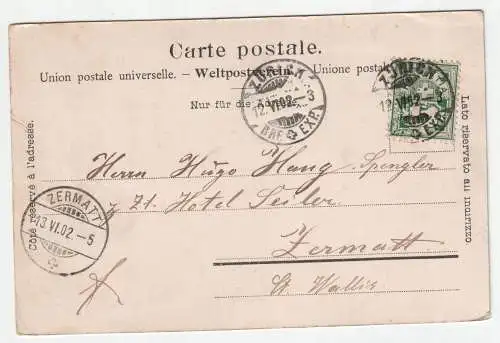 Carte postale.
Union postale universelle. — Weltpostverein. — Unione postale
Nur für die Adresse.
Côté réservé à l'adresse.
Lato riservato au inurizzo
ZÜRICH
12.VI.02.–3
BRF. EXP.
ZÜRICH
12.VI.02
EXP.
Herrn Hugo Haug, Spengler
z. Zt. Hotel Seiler
Zermatt
Ct. Wallis
ZERMATT
13.VI.02.–5